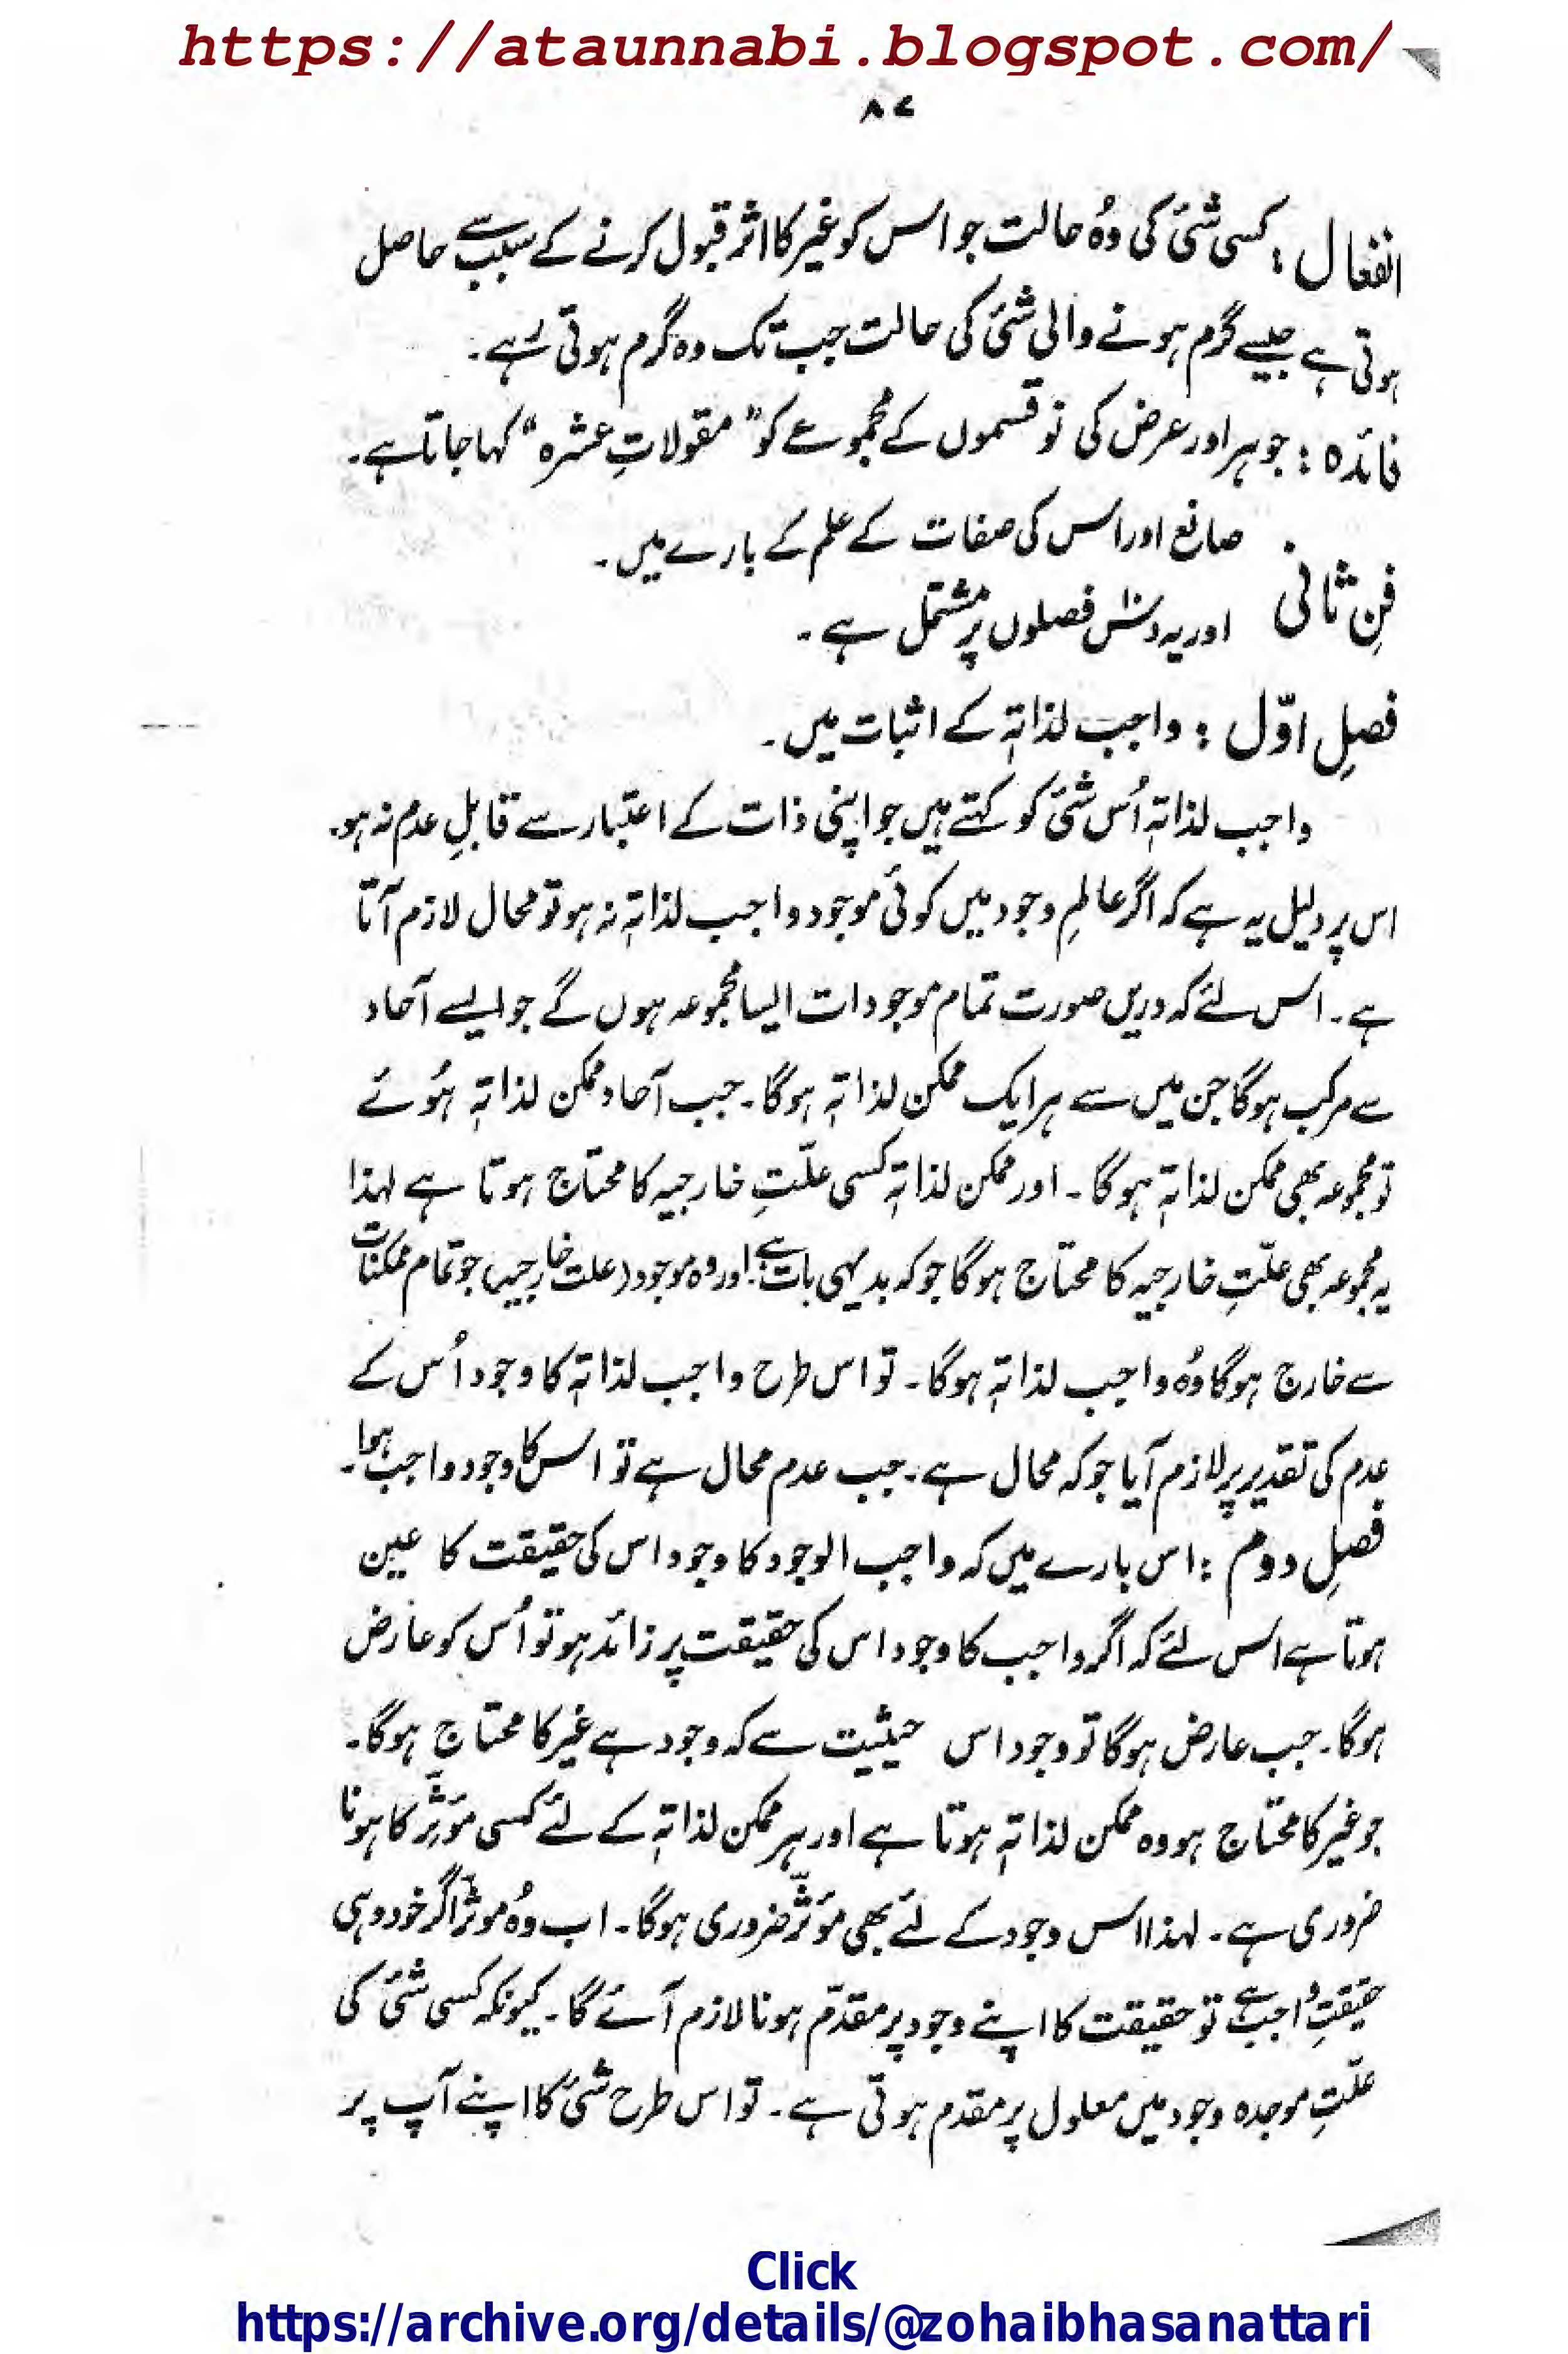 https://ataunnabi.blogspot.com/
۸۷
انفعال : کسی شئ کی وُہ حالت جو اس کو غیر کا اثر قبول کرنے کے سبب سے حاصل
ہوتی ہے جیسے گرم ہونے والی شئ کی حالت جب تک وہ گرم ہوتی رہے۔
فائدہ : جوہر اور عرض کی نو قسموں کے مجموعے کو "مقولاتِ عشرہ" کہا جاتا ہے۔
فنِ ثانی صانع اور اس کی صفات کے علم کے بارے میں۔
اور یہ دس فصلوں پر مشتمل ہے۔
فصلِ اوّل : واجب لذاتہٖ کے اثبات میں۔
واجب لذاتہٖ اُس شئ کو کہتے ہیں جو اپنی ذات کے اعتبار سے قابلِ عدم نہ ہو۔
اس پر دلیل یہ ہے کہ اگر عالمِ وجود میں کوئی موجود واجب لذاتہٖ نہ ہو تو محال لازم آتا
ہے۔ اس لئے کہ دریں صورت تمام موجودات ایسا مجموعہ ہوں گے جو ایسے آحاد
سے مرکب ہوگا جن میں سے ہر ایک ممکن لذاتہٖ ہوگا۔ جب آحاد ممکن لذاتہٖ ہُوئے
تو مجموعہ بھی ممکن لذاتہٖ ہوگا۔ اور ممکن لذاتہٖ کسی علّتِ خارجیہ کا محتاج ہوتا ہے لہذا
یہ مجموعہ بھی علّتِ خارجیہ کا محتاج ہوگا جو کہ بدیہی بات ہے۔ اور وہ موجود (علت خارجیہ) جو تمام ممکنات
سے خارج ہوگا وُہ واجب لذاتہٖ ہوگا۔ تو اس طرح واجب لذاتہٖ کا وجود اُس کے
عدم کی تقدیر پر لازم آیا جو کہ محال ہے۔ جب عدم محال ہے تو اس کا وجود واجب ہوا۔
فصلِ دوم : اس بارے میں کہ واجب الوجود کا وجود اس کی حقیقت کا عین
ہوتا ہے اس لئے کہ اگر واجب کا وجود اس کی حقیقت پر زائد ہو تو اُس کو عارض
ہوگا۔ جب عارض ہوگا تو وجود اس حیثیت سے کہ وجود ہے غیر کا محتاج ہوگا۔
جو غیر کا محتاج ہو وہ ممکن لذاتہٖ ہوتا ہے اور ہر ممکن لذاتہٖ کے لئے کسی مؤثِّر کا ہونا
ضروری ہے۔ لہذا اس وجود کے لئے بھی مؤثِّر ضروری ہوگا۔ اب وُہ موثر اگر خود وہی
حقیقتِ واجب ہے تو حقیقت کا اپنے وجود پر مقدّم ہونا لازم آئے گا۔ کیونکہ کسی شئ کی
علّتِ موجدہ وجود میں معلول پر مقدم ہوتی ہے۔ تو اس طرح شئ کا اپنے آپ پر
Click
https://archive.org/details/@zohaibhasanattari